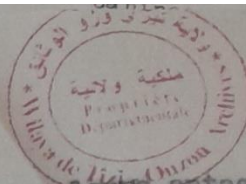 ولاية تيزي وزو
ملكية ولائية
Propriété
Départementale
Wilaya de Tizi Ouzou Archives